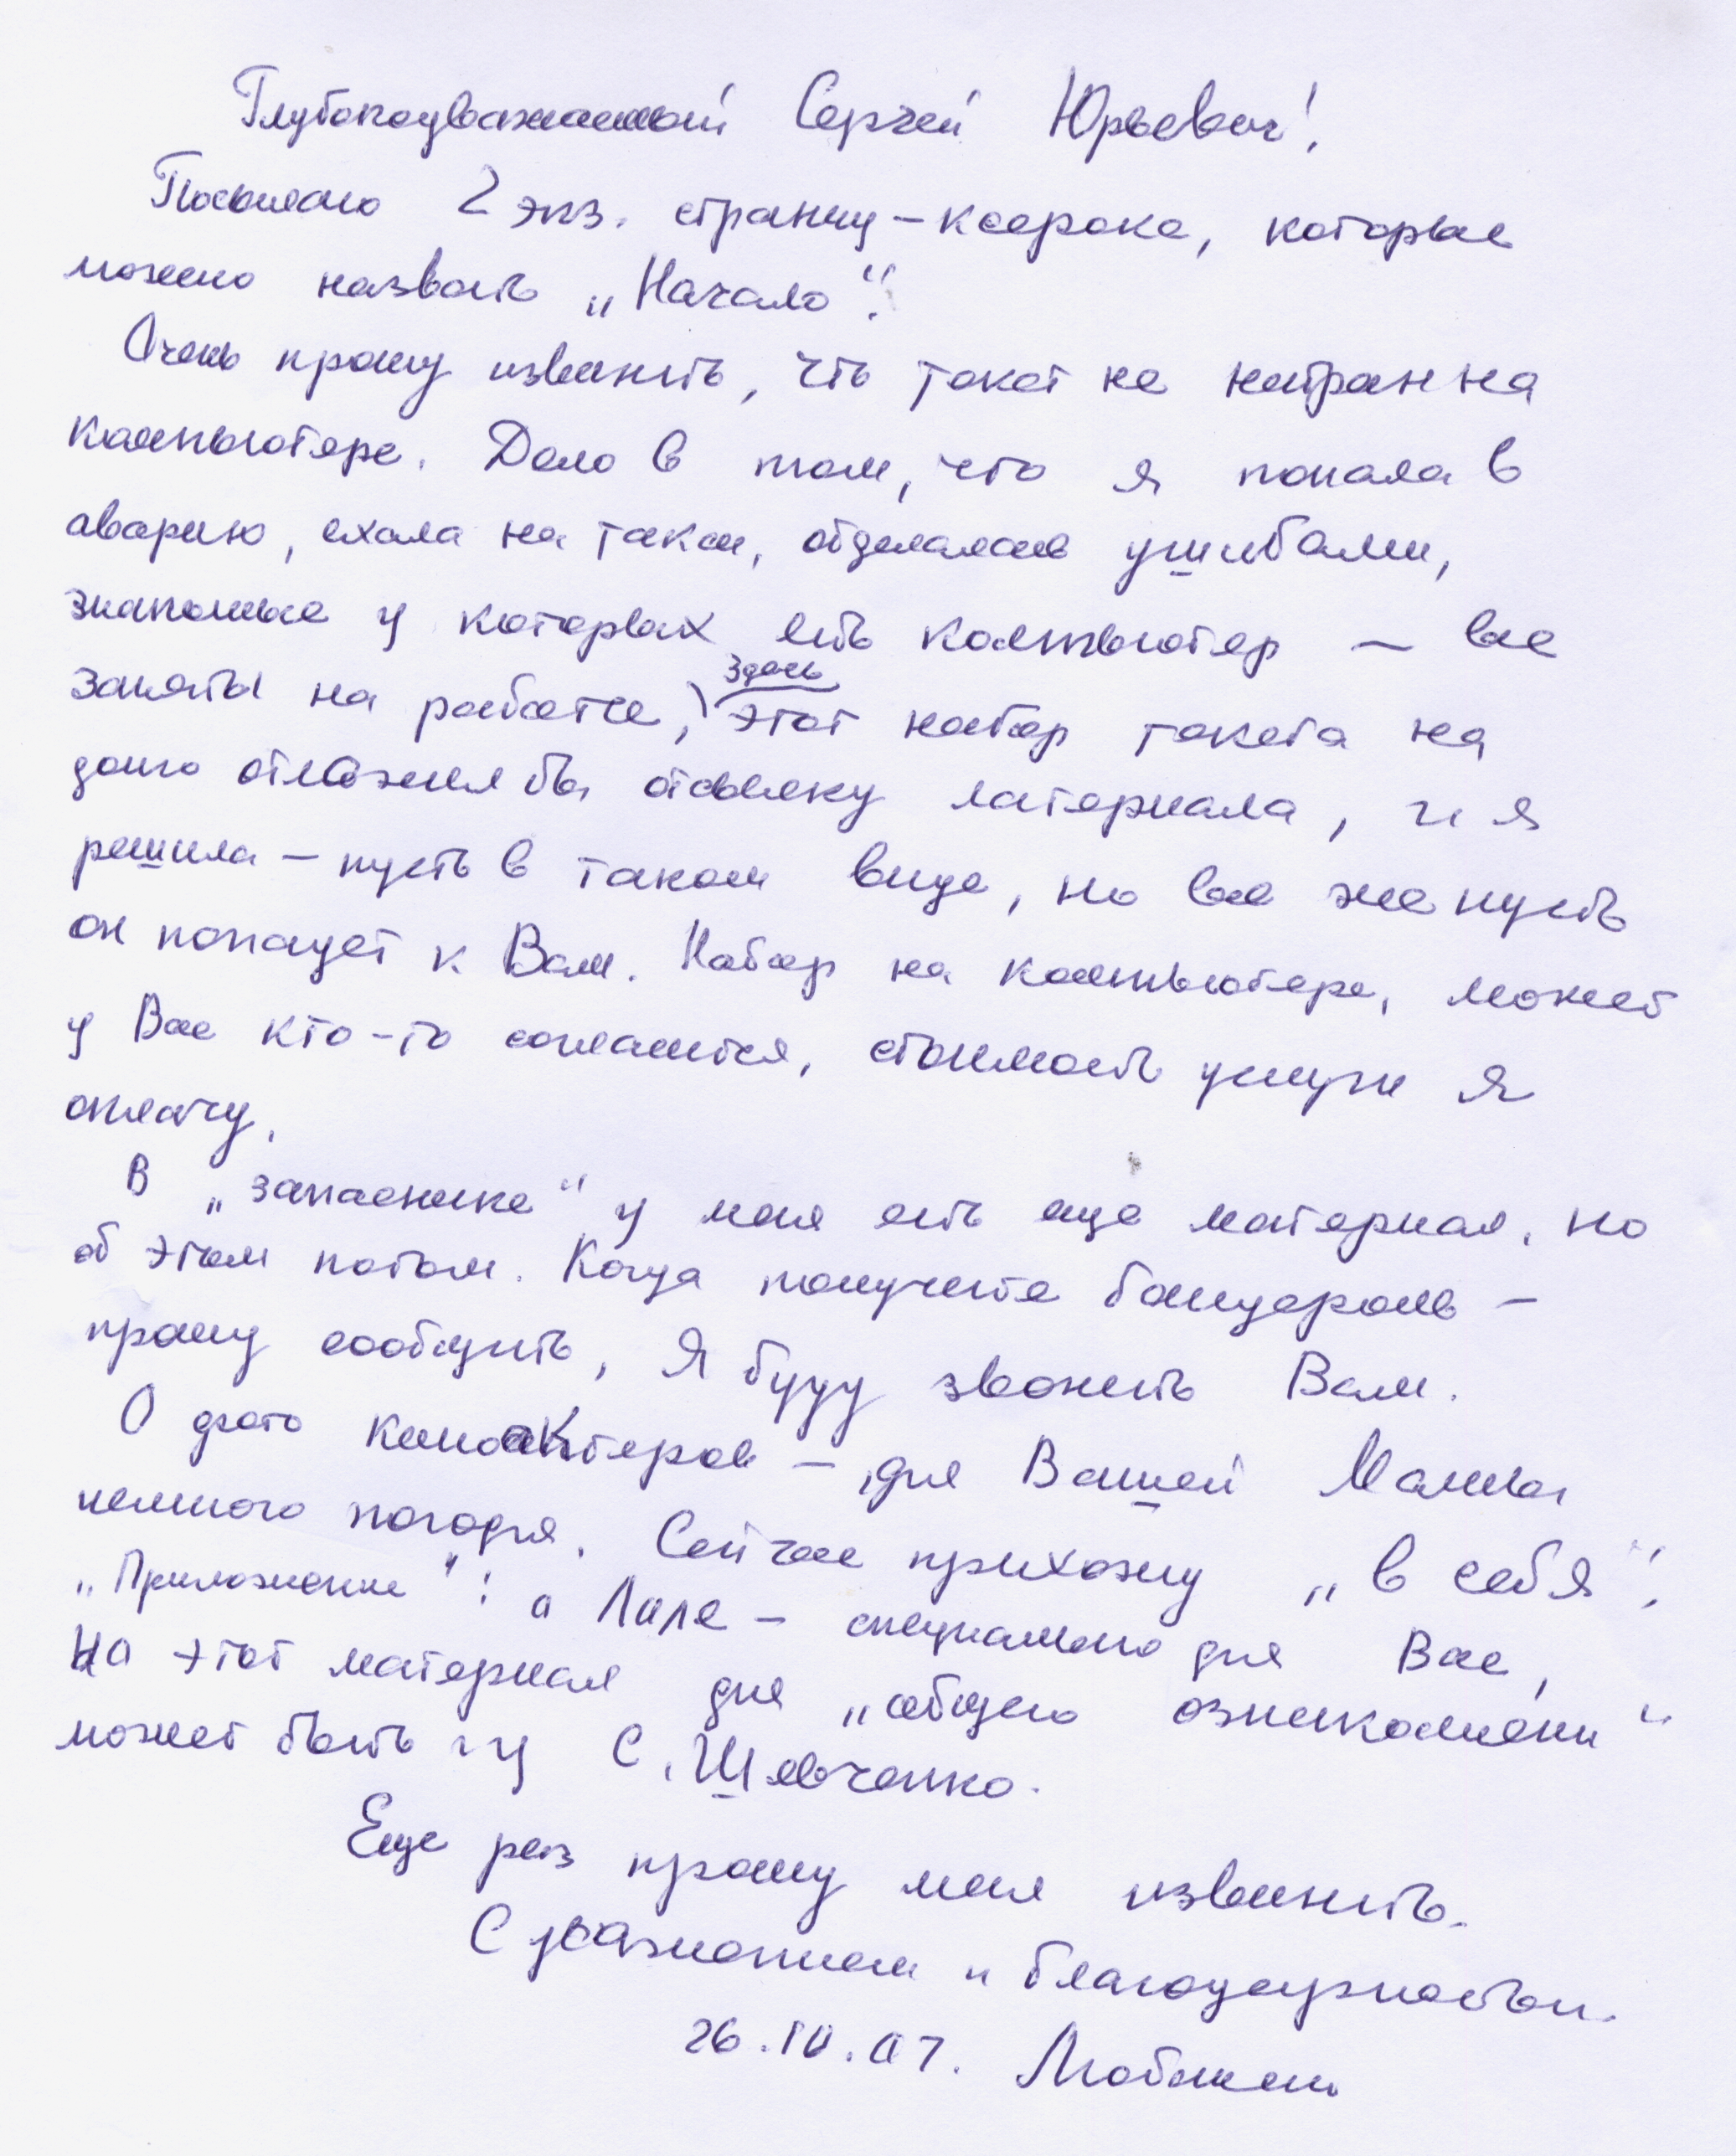 Глубокоуважаемый Сергей Юрьевич!
Посылаю 2 экз. страниц - ксерокс, которые
можно назвать „Начало“.
Очень прошу извинить, что текст не набран на
компьютере. Дело в том, что я попала в
аварию, ехала на такси, отделалась ушибами,
знакомые у которых есть компьютер – все
заняты на работе, здесь этот набор текста на
долго отложил бы отсылку материала, и я
решила – пусть в таком виде, но все же пусть
он попадет к Вам. Набор на компьютере, может
у Вас кто-то согласится, стоимость услуги я
оплачу.
В „запаснике“ у меня есть еще материал, но
об этом потом. Когда получите бандероль –
прошу сообщить, Я буду звонить Вам.
О фото киноактеров – для Вашей Мамы
немного погодя. Сейчас прихожу „в себя“.
„Приложение“: о Ляле – специально для Вас,
На этот материал для „общего ознакомлени“
может быть и у С. Шевченко.
Еще раз прошу меня извинить.
С уважением и благодарностью.
26.10.07.